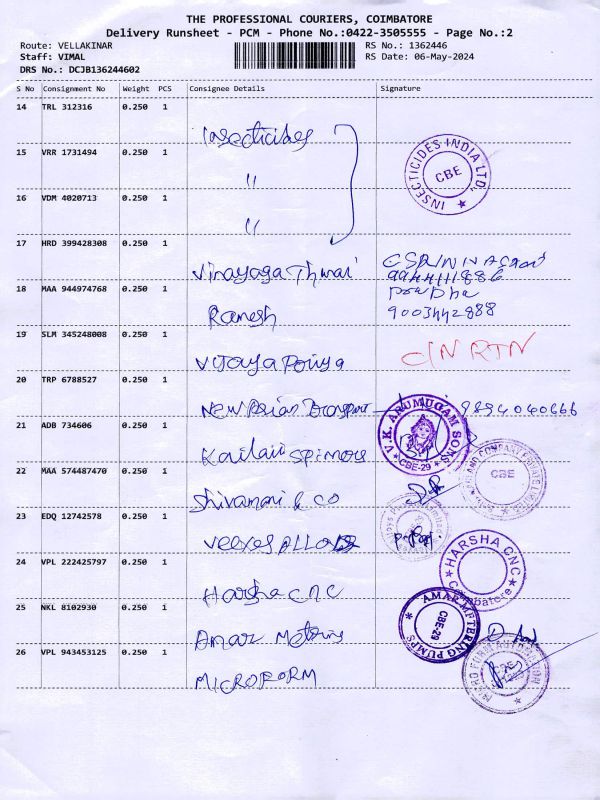 THE PROFESSIONAL COURIERS, COIMBATORE
Delivery Runsheet - PCM - Phone No.:0422-3505555 - Page No.:2
Route: VELLAKINAR
RS No.: 1362446
Staff: VIMAL
RS Date: 06-May-2024
DRS No.: DCJB136244602
S No Consignment No Weight PCS Consignee Details Signature
14 TRL 312316 0.250 1
Insecticides
15 VRR 1731494 0.250 1
"
INSECTICIDES INDIA LTD.
CBE
16 VDM 4020713 0.250 1
"
17 HRD 399428308 0.250 1
Vinayaga
9944111886
18 MAA 944974768 0.250 1
Ramesh
Prabha
9003442888
19 SLM 345248008 0.250 1
Vijaya Poriya
C/N RTN
20 TRP 6788527 0.250 1
New
9894040666
21 ADB 734606 0.250 1
V.K. ARUMUGAM SONS
CBE-29
22 MAA 574487470 0.250 1
Shivamani & Co
CBE
23 EDQ 12742578 0.250 1
24 VPL 222425797 0.250 1
Harsha CNC
HARSHA CNC
Coimbatore
25 NKL 8102930 0.250 1
Amar
AMAR METERING PUMPS
CBE-29
26 VPL 943453125 0.250 1
MICROFORM